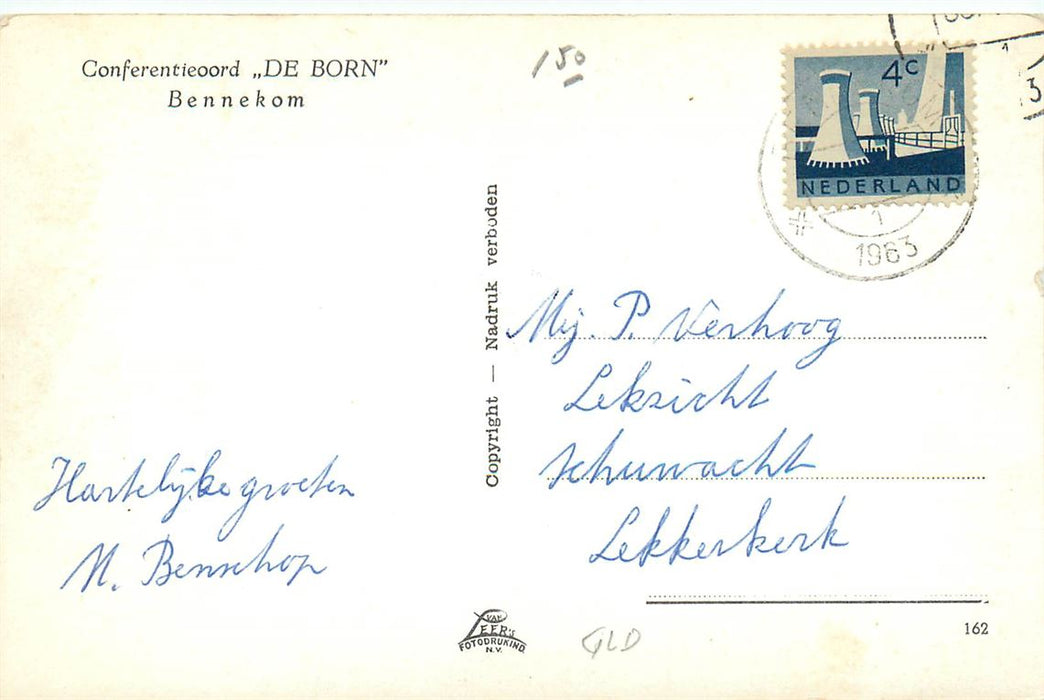 Conferentieoord „DE BORN”
Bennekom
150
4c
NEDERLAND
1
1963
3
Copyright — Nadruk verboden
Mej. P. Verhoog
Lekzicht
Schuwacht
Lekkerkerk
Hartelijke groeten
N. Benschop
VAN
LEER'S
FOTODRUKIND.
N.V.
GLD
162